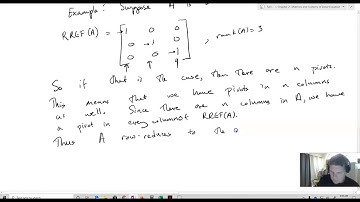 Example: Suppose A is
RREF(A) = [ 1 0 0
0 1 0
0 0 1 ] , rank(A)=3
So if that is the case, then there are n pivots.
This means that we have pivots in n columns
as well. Since there are n columns in A, we have
a pivot in every column of RREF(A).
Thus A row-reduces to the